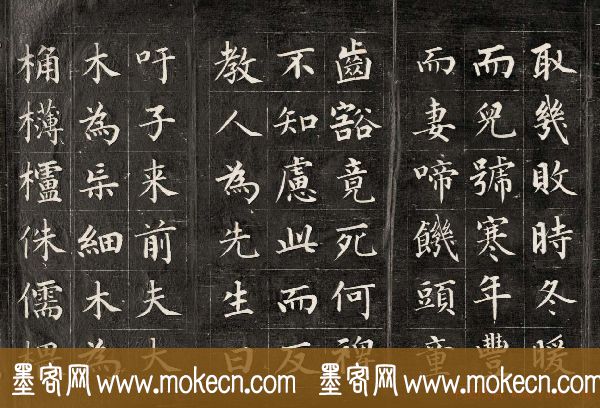 取幾敗時冬暖
而兒號寒年豐
而妻啼饑頭童
齒豁竟死何裨
不知慮此而反
教人為先生曰
吁子来前夫大
木為杗細木為
桷欂櫨侏儒
墨客网 www.mokecn.com 墨客网 www.mokecn.com